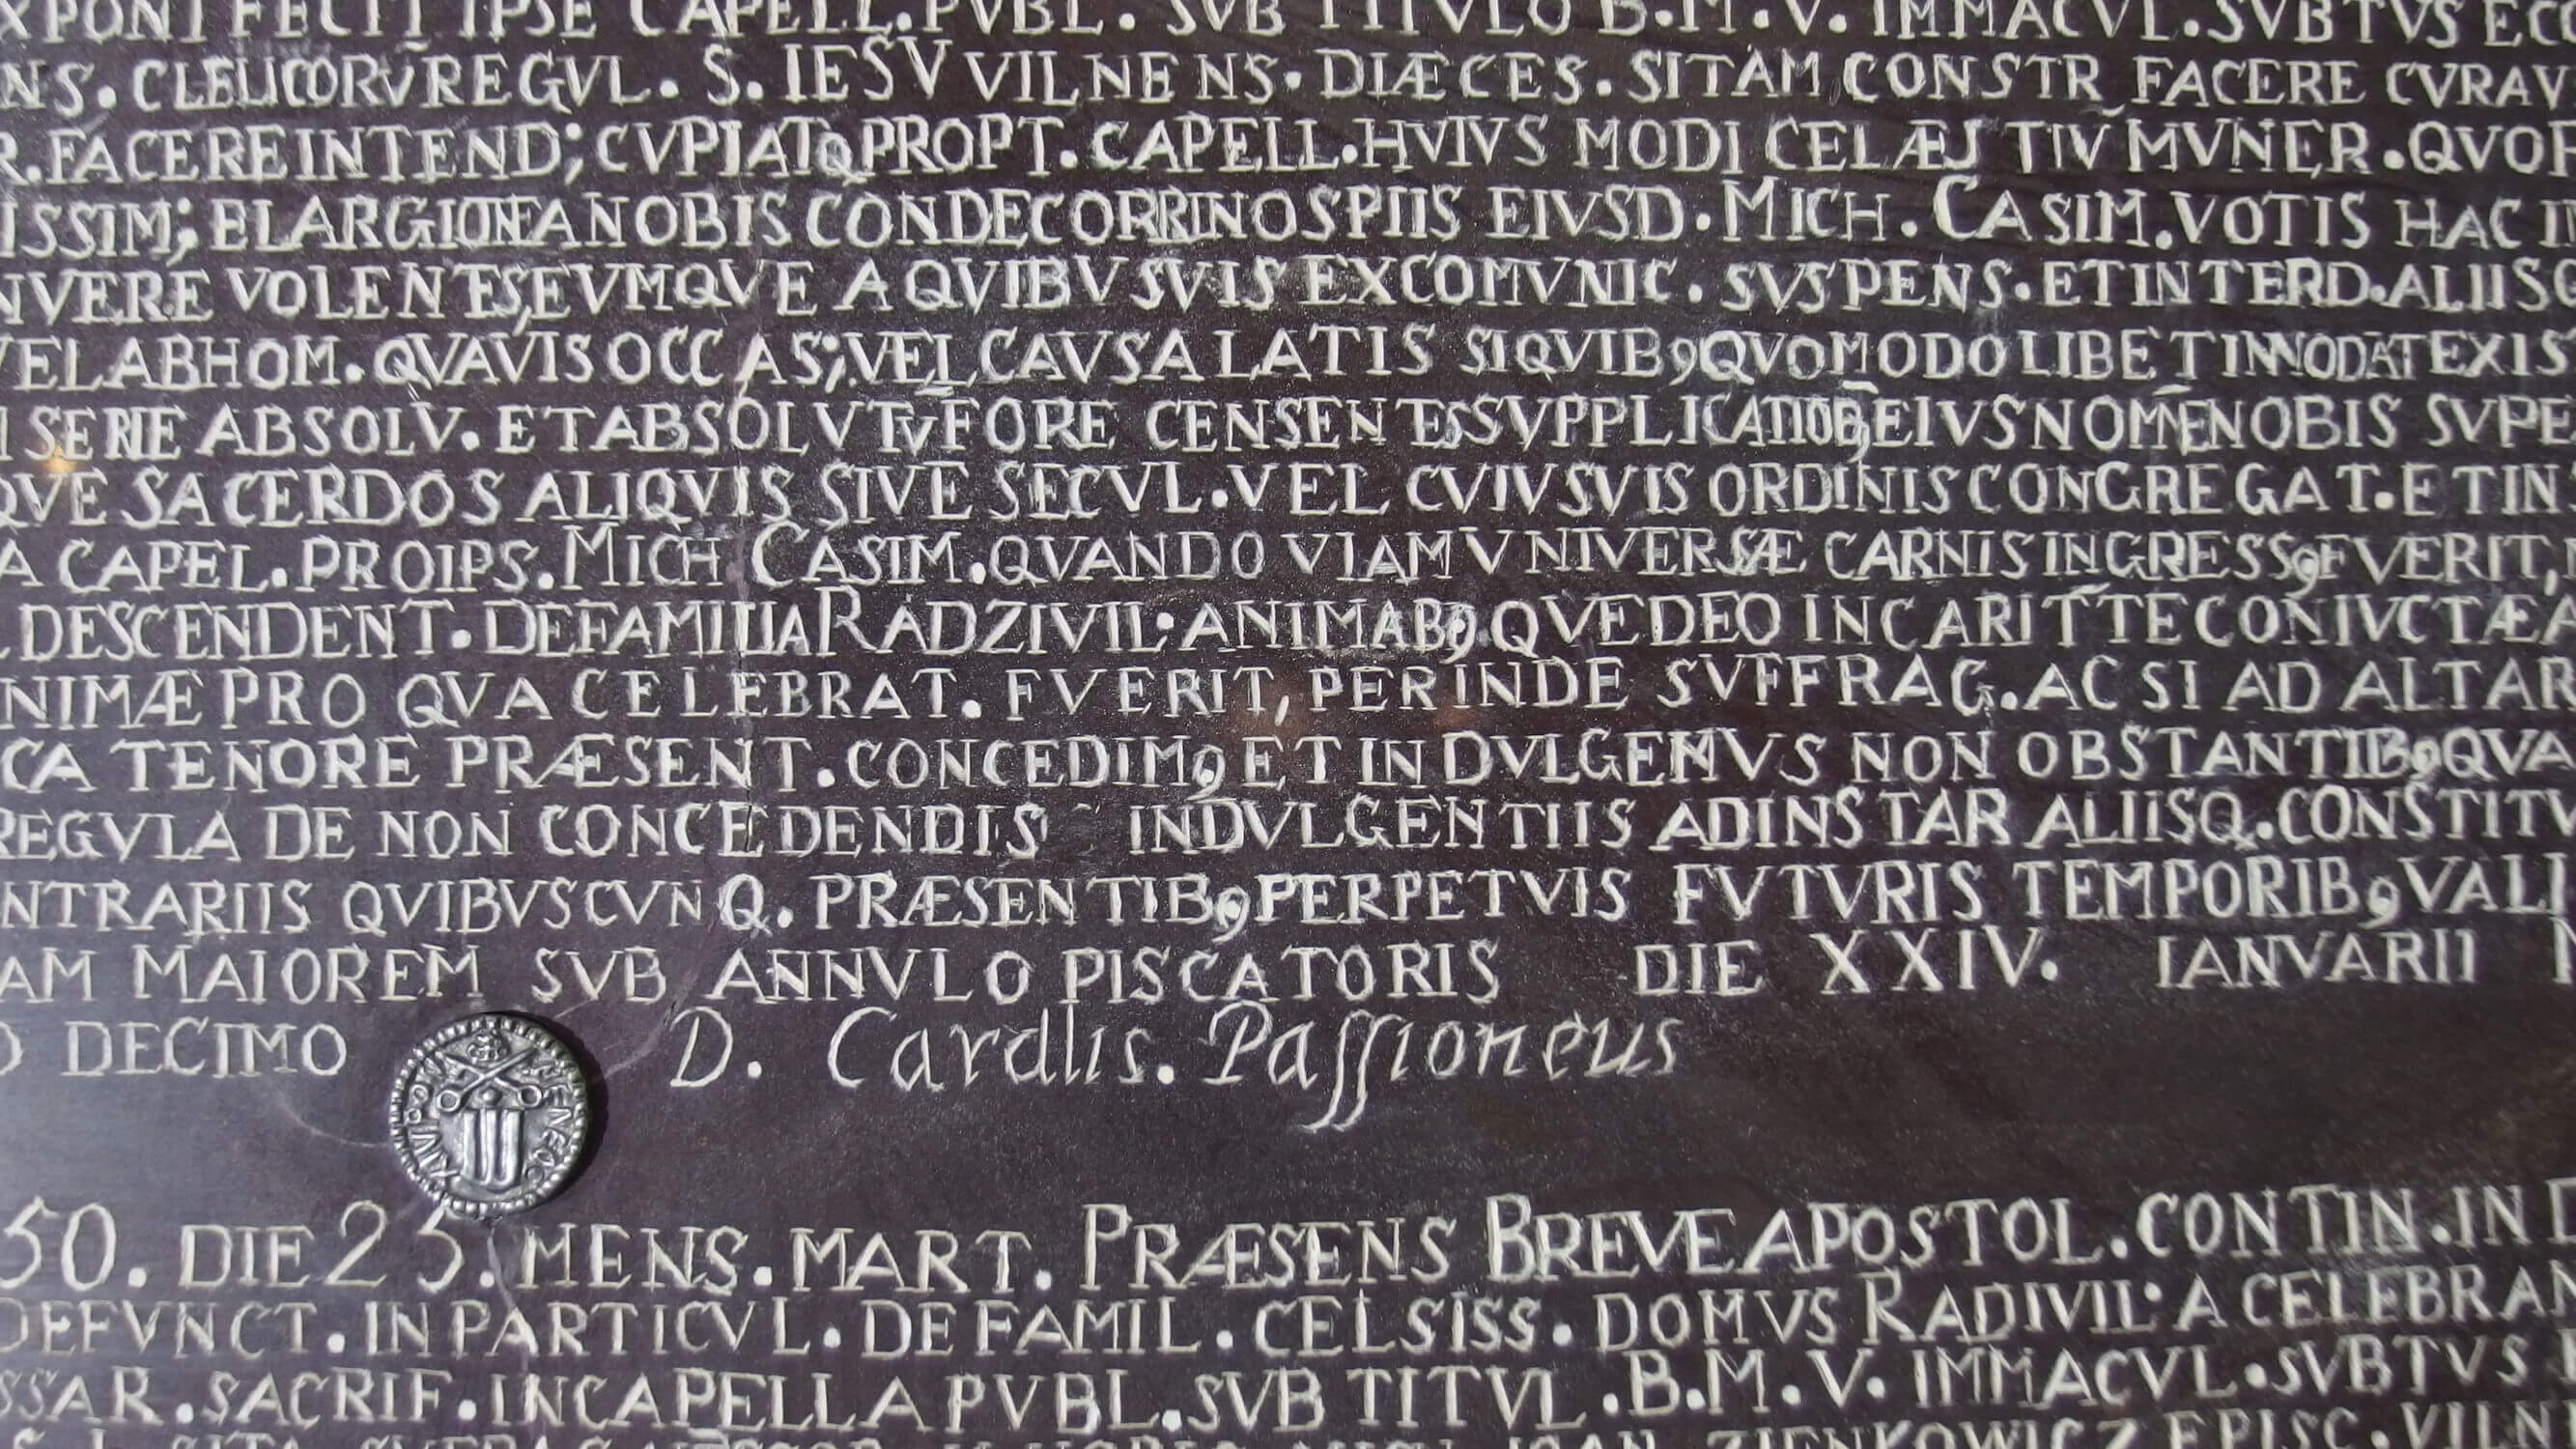 XPONI FECIT IPSE CAPELL. PVBL. SVB TITVLO B.M.V. IMMACVL. SVBTVS ECC
NS. CLERICORV̄ REGVL. S. IESV VILNENS. DIÆCES. SITAM CONSTR FACERE CVRAV
R. FACERE INTEND; CVPIATQ PROPT. CAPELL. HVIVS MODI CELÆS TIV̄ MVNER. QVOR
ISSIM; ELARGITIONE A NOBIS CONDECORRI NOS PIIS EIVSD. MICH. CASIM. VOTIS HAC IN
NVERE VOLENTES, EVMQVE A QVIBVSVIS EXCOMVNIC. SVSPENS. ET INTERD. ALIISQ
VEL AB HOM. QVAVIS OCCAS; VEL CAVSA LATIS SI QVIB9 QVOMODOLIBET INNODAT EXIS
I SERIE ABSOLV. ET ABSOLVTV̄ FORE CENSENTES SVPPLICATIOB9 EIVS NOMĒNE NOBIS SVPE
QVE SACERDOS ALIQVIS SIVE SECVL. VEL CVIVSVIS ORDINIS CONGREGAT. ET IN
A CAPEL. PRO IPS. MICH CASIM. QVANDO VIAM VNIVERSÆ CARNIS INGRESS9 FVERIT,
DESCENDENT. DE FAMILIA RADZIVIL: ANIMAB9. QVE DEO IN CARITT̄E CONIVCTÆ A
NIMÆ PRO QVA CELEBRAT. FVERIT, PERINDE SVFFRAG. AC SI AD ALTAR
CA TENORE PRÆSENT. CONCEDIM9 ET INDVLGEMVS NON OBSTANTIB9 QVA
REGVLA DE NON CONCEDENDIS INDVLGENTIIS AD INSTAR ALIISQ. CONSTITV
NTRARIIS QVIBVSCVNQ. PRÆSENTIB9 PERPETVIS FVTVRIS TEMPORIB9 VALI
AM MAIOREM SVB ANNVLO PISCATORIS DIE XXIV. IANVARII
O DECIMO D. Cardlis. Paſſioneus
50. DIE 25. MENS. MART. PRÆSENS BREVE APOSTOL. CONTIN. IN
DEFVNCT. IN PARTICVL. DE FAMIL. CELSISS. DOMVS RADIVIL: A CELEBRAN
SSAR. SACRIF. IN CAPELLA PVBL. SVB TITVL. B.M.V. IMMACVL. SVBTVS
ZIENKOWICZ EPISC. VILN